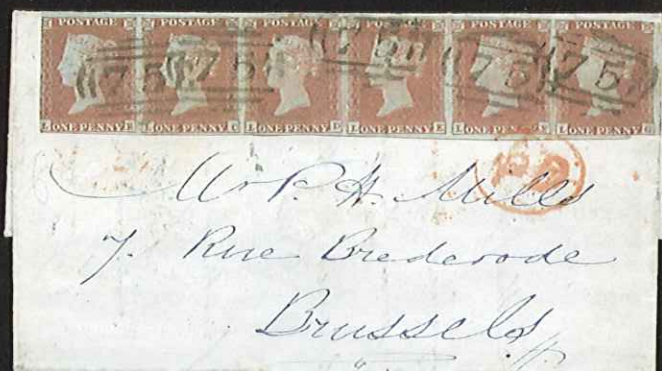 POSTAGE POSTAGE POSTAGE POSTAGE POSTAGE POSTAGE
75 75 75 75 75
ONE PENNY ONE PENNY ONE PENNY ONE PENNY ONE PENNY ONE PENNY
Mr P. H. Mills
7. Rue Brederode
Brussels